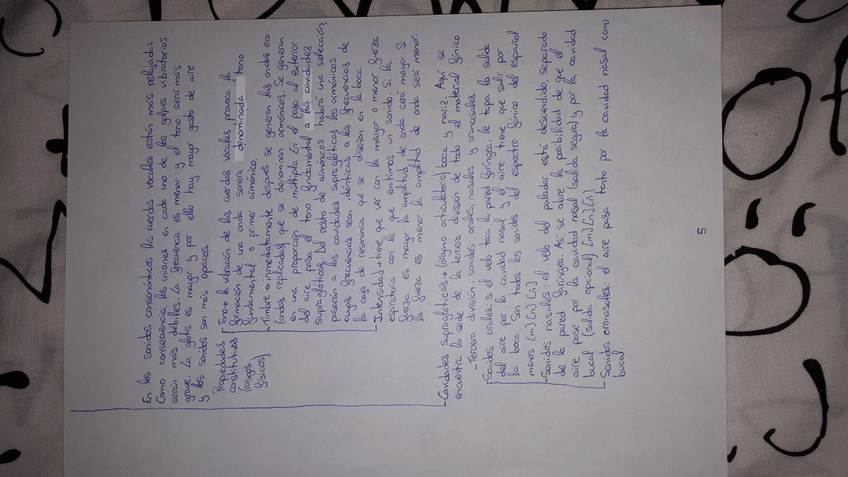 En los sonidos consonánticos las cuerdas vocales están más relajadas.
Como consecuencia las uniones en cada uno de los golpes vibratorios
serán más débiles. La frecuencia es menor y el tono será más
grave. La glotis es mayor y por ello hay mayor gasto de aire
y los sonidos son más opacos.
Propiedades
constitutivas
(rasgos
físicos)
Tono → la vibración de las cuerdas vocales provoca la
formación de una onda sonora denominada tono
fundamental y primer armónico.
- Timbre → inmediatamente después se generan las ondas eco
(ondas replicadas) que se denominan armónicos. Se generan
en una proporción de múltiplo. En el paso al exterior
del aire pasa el tono fundamental a las cavidades
supraglóticas. Del resto de armónicos habrá una selección,
pasarán a las cavidades supraglóticas los armónicos
cuyas frecuencias sean idénticas a las frecuencias de
la caja de resonancia que se diseñan en la boca
Intensidad → tiene que ver con la mayor o menor fuerza
espiratoria con la que emitimos un sonido. Si la
fuerza es mayor la amplitud de onda será mayor. Si
la fuerza es menor la amplitud de onda será menor.
- Cavidades supraglóticas → (órgano articulatorio) boca y nariz. Aquí se
encuentra la sede de la tercera división de todo el material fónico
- Tercera división: sonidos orales, nasales y oronasales.
- Sonidos orales: si el velo toca la pared faríngea le tapa la salida
del aire por la cavidad nasal y el aire tiene que salir por
la boca. Son todos los sonidos del espectro fónico del español
menos [m] [n] [ɲ]
- Sonidos nasales: el velo del paladar está descendido, separado
de la pared faríngea. Así se abre la posibilidad de que el
aire pase por la cavidad nasal (salida segura) y por la cavidad
bucal (salida opcional) [m] [n] [ɲ]
Sonidos oronasales: el aire pasa tanto por la cavidad nasal como
bucal.
5